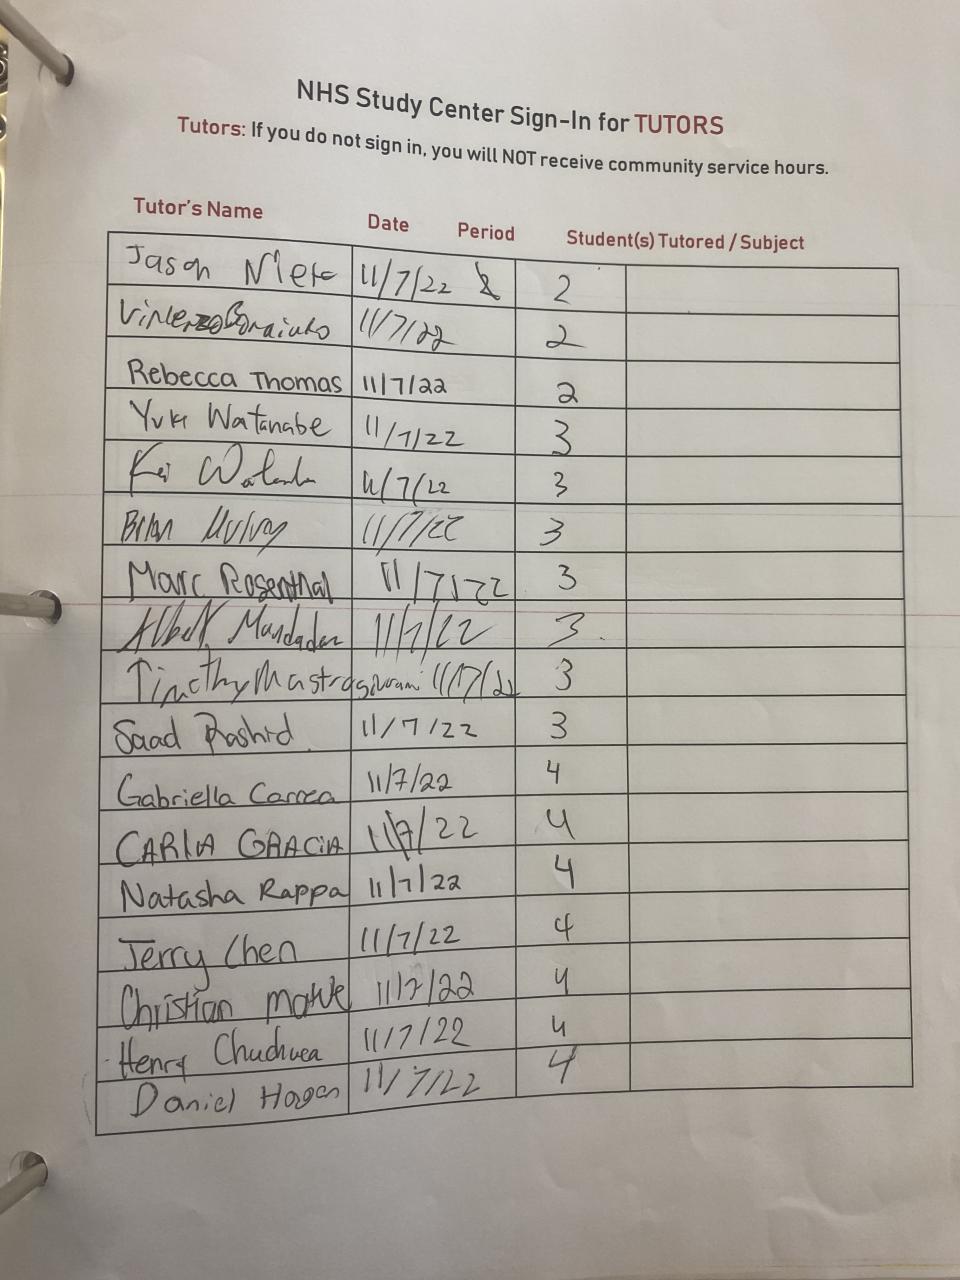 NHS Study Center Sign-In for TUTORS
Tutors: If you do not sign in, you will NOT receive community service hours.
Tutor's Name Date Period Student(s) Tutored / Subject
Jason 11/7/22 2
11/7/22 2
Rebecca Thomas 11/7/22 2
Yuki Watanabe 11/7/22 3
Kei 11/7/22 3
Brian 11/7/22 3
Marc Rosenthal 11/7/22 3
Albert 11/7/22 3
Timothy 11/7/22 3
Saad Rashid 11/7/22 3
Gabriella Correa 11/7/22 4
CARLA GRACIA 11/7/22 4
Natasha Rappa 11/7/22 4
Jerry Chen 11/7/22 4
Christian 11/7/22 4
Henry 11/7/22 4
Daniel Hogan 11/7/22 4